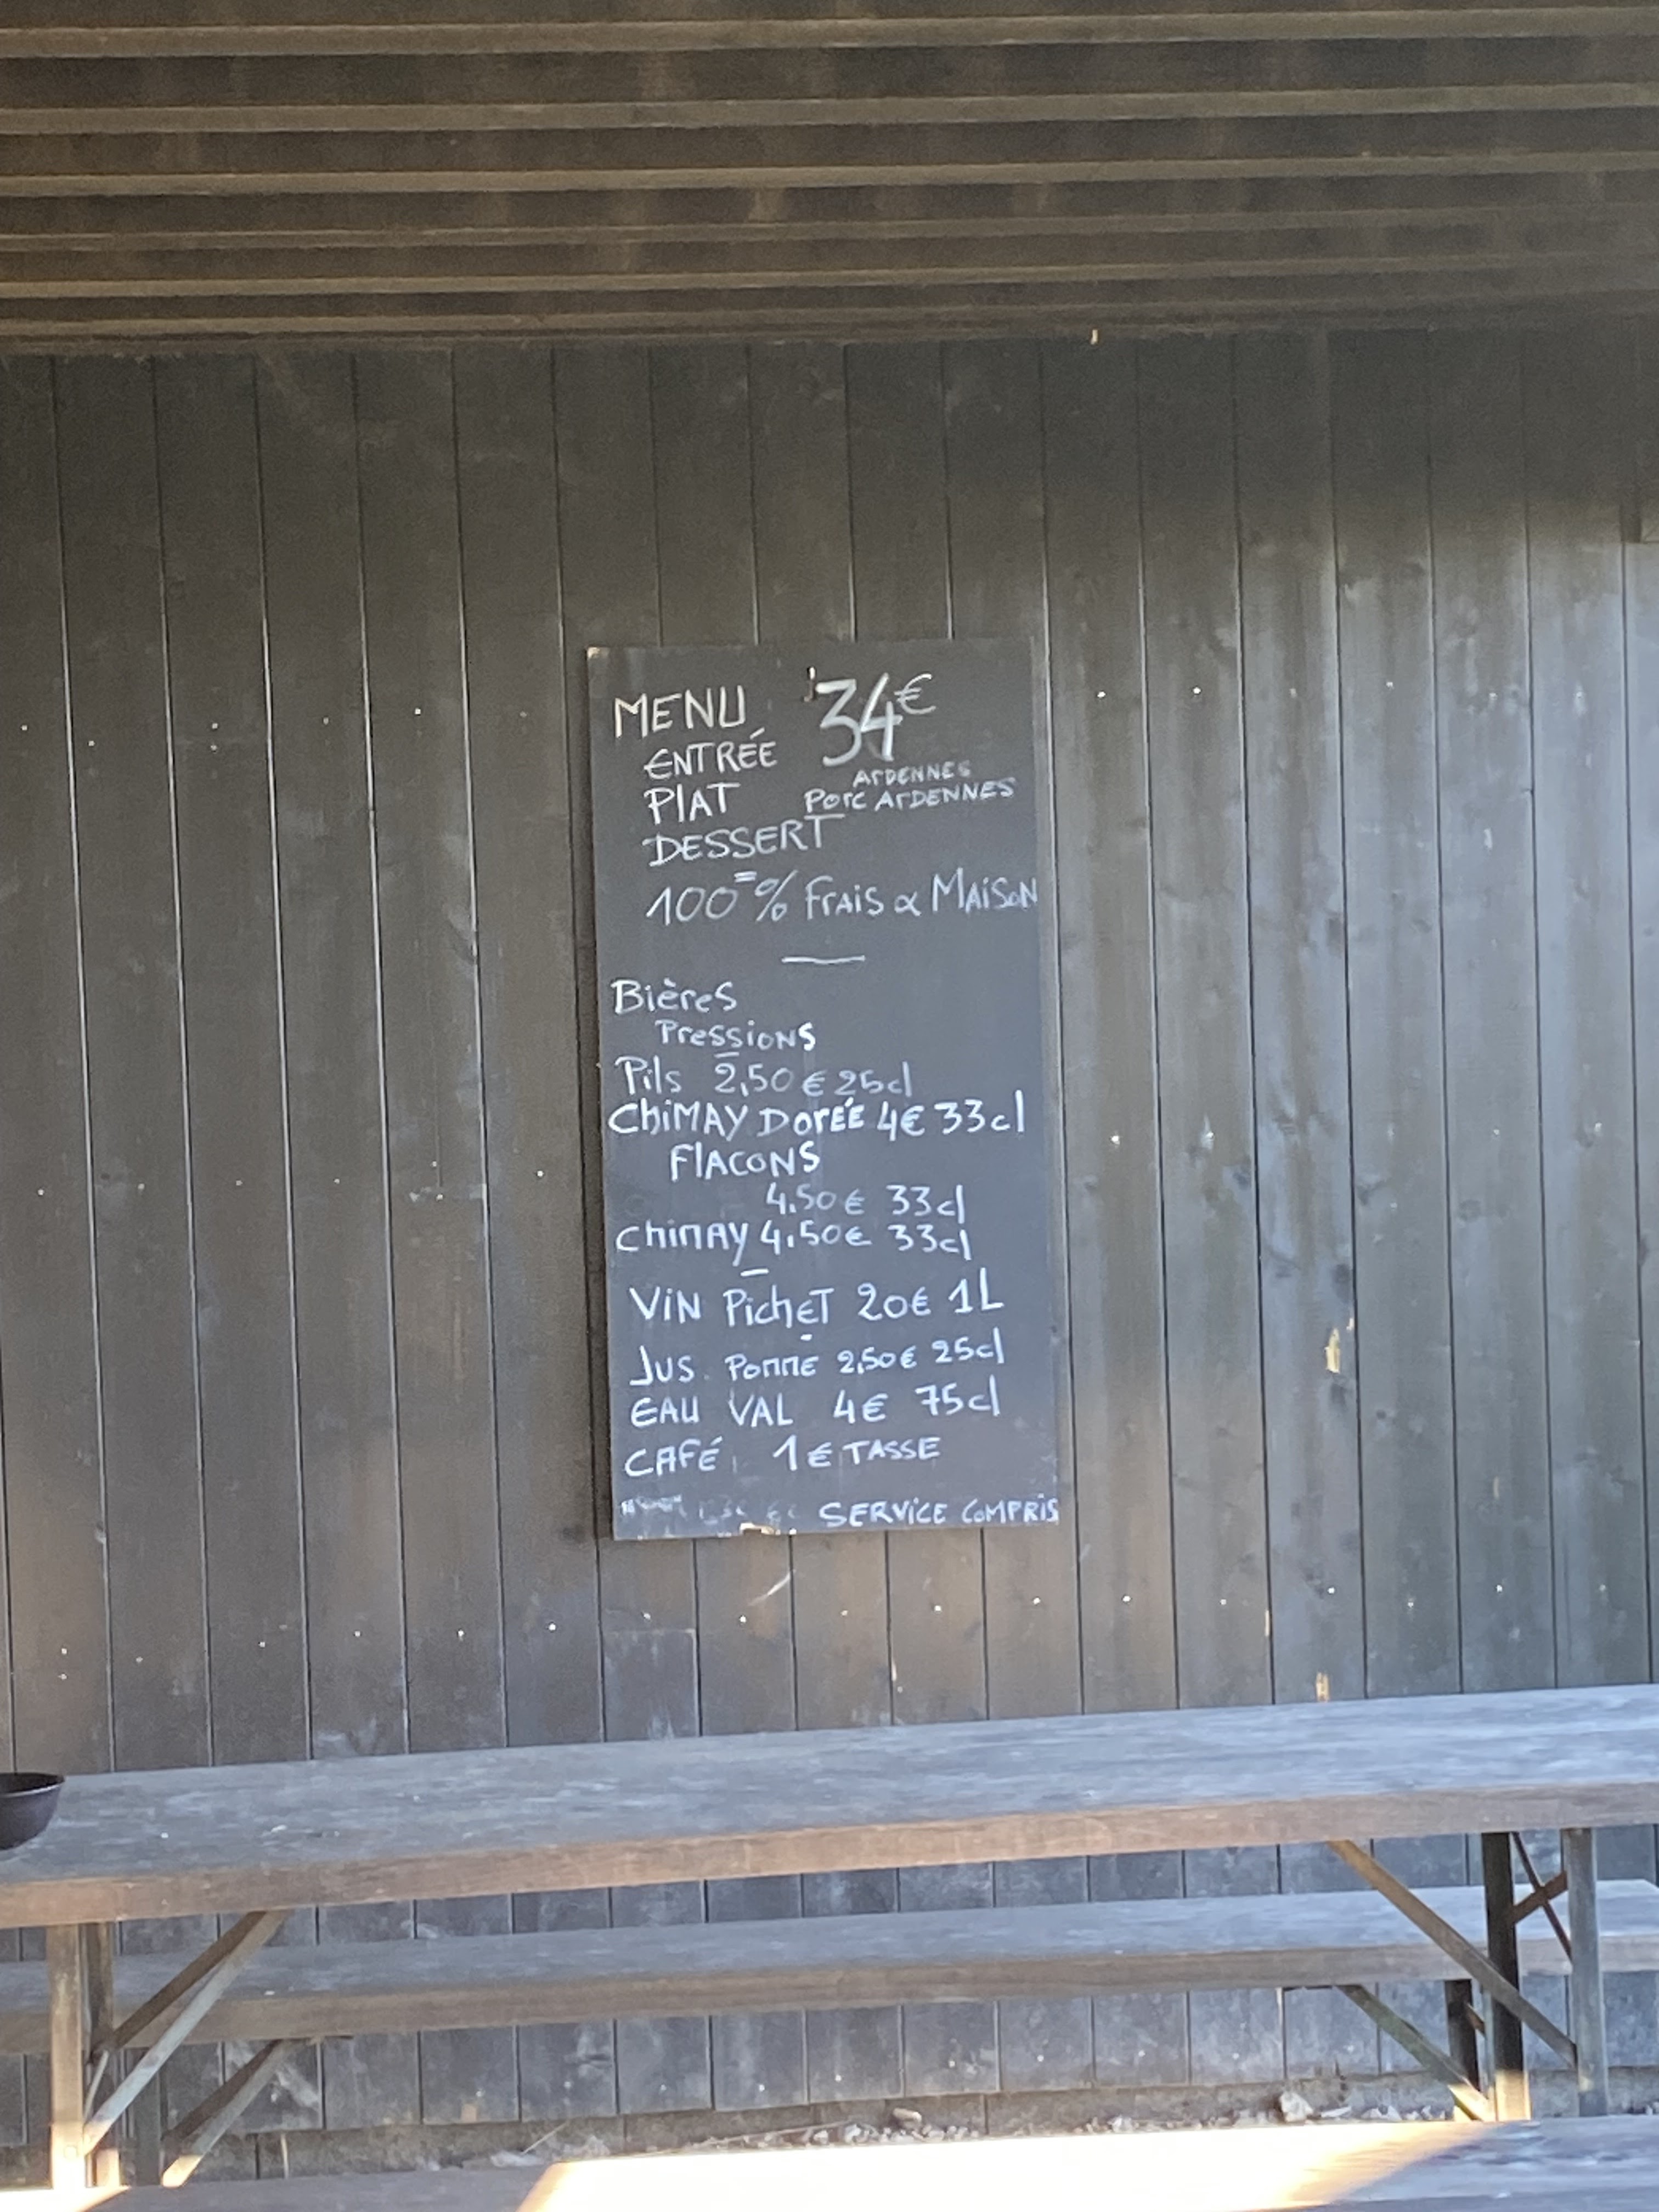 MENU 34€
ENTRÉE
ARDENNES
PLAT Porc ARDENNES
DESSERT
100% Frais & MAISON
Bières
Pressions
Pils 2,50 € 25cl
ChiMAY DORÉE 4€ 33cl
FLACONS
4.50€ 33cl
ChiMAY 4.50€ 33cl
ViN PichET 20€ 1L
JUS POMME 2,50€ 25cl
EAU VAL 4€ 75cl
CAFÉ 1€ TASSE
SERViCE COMPRiS